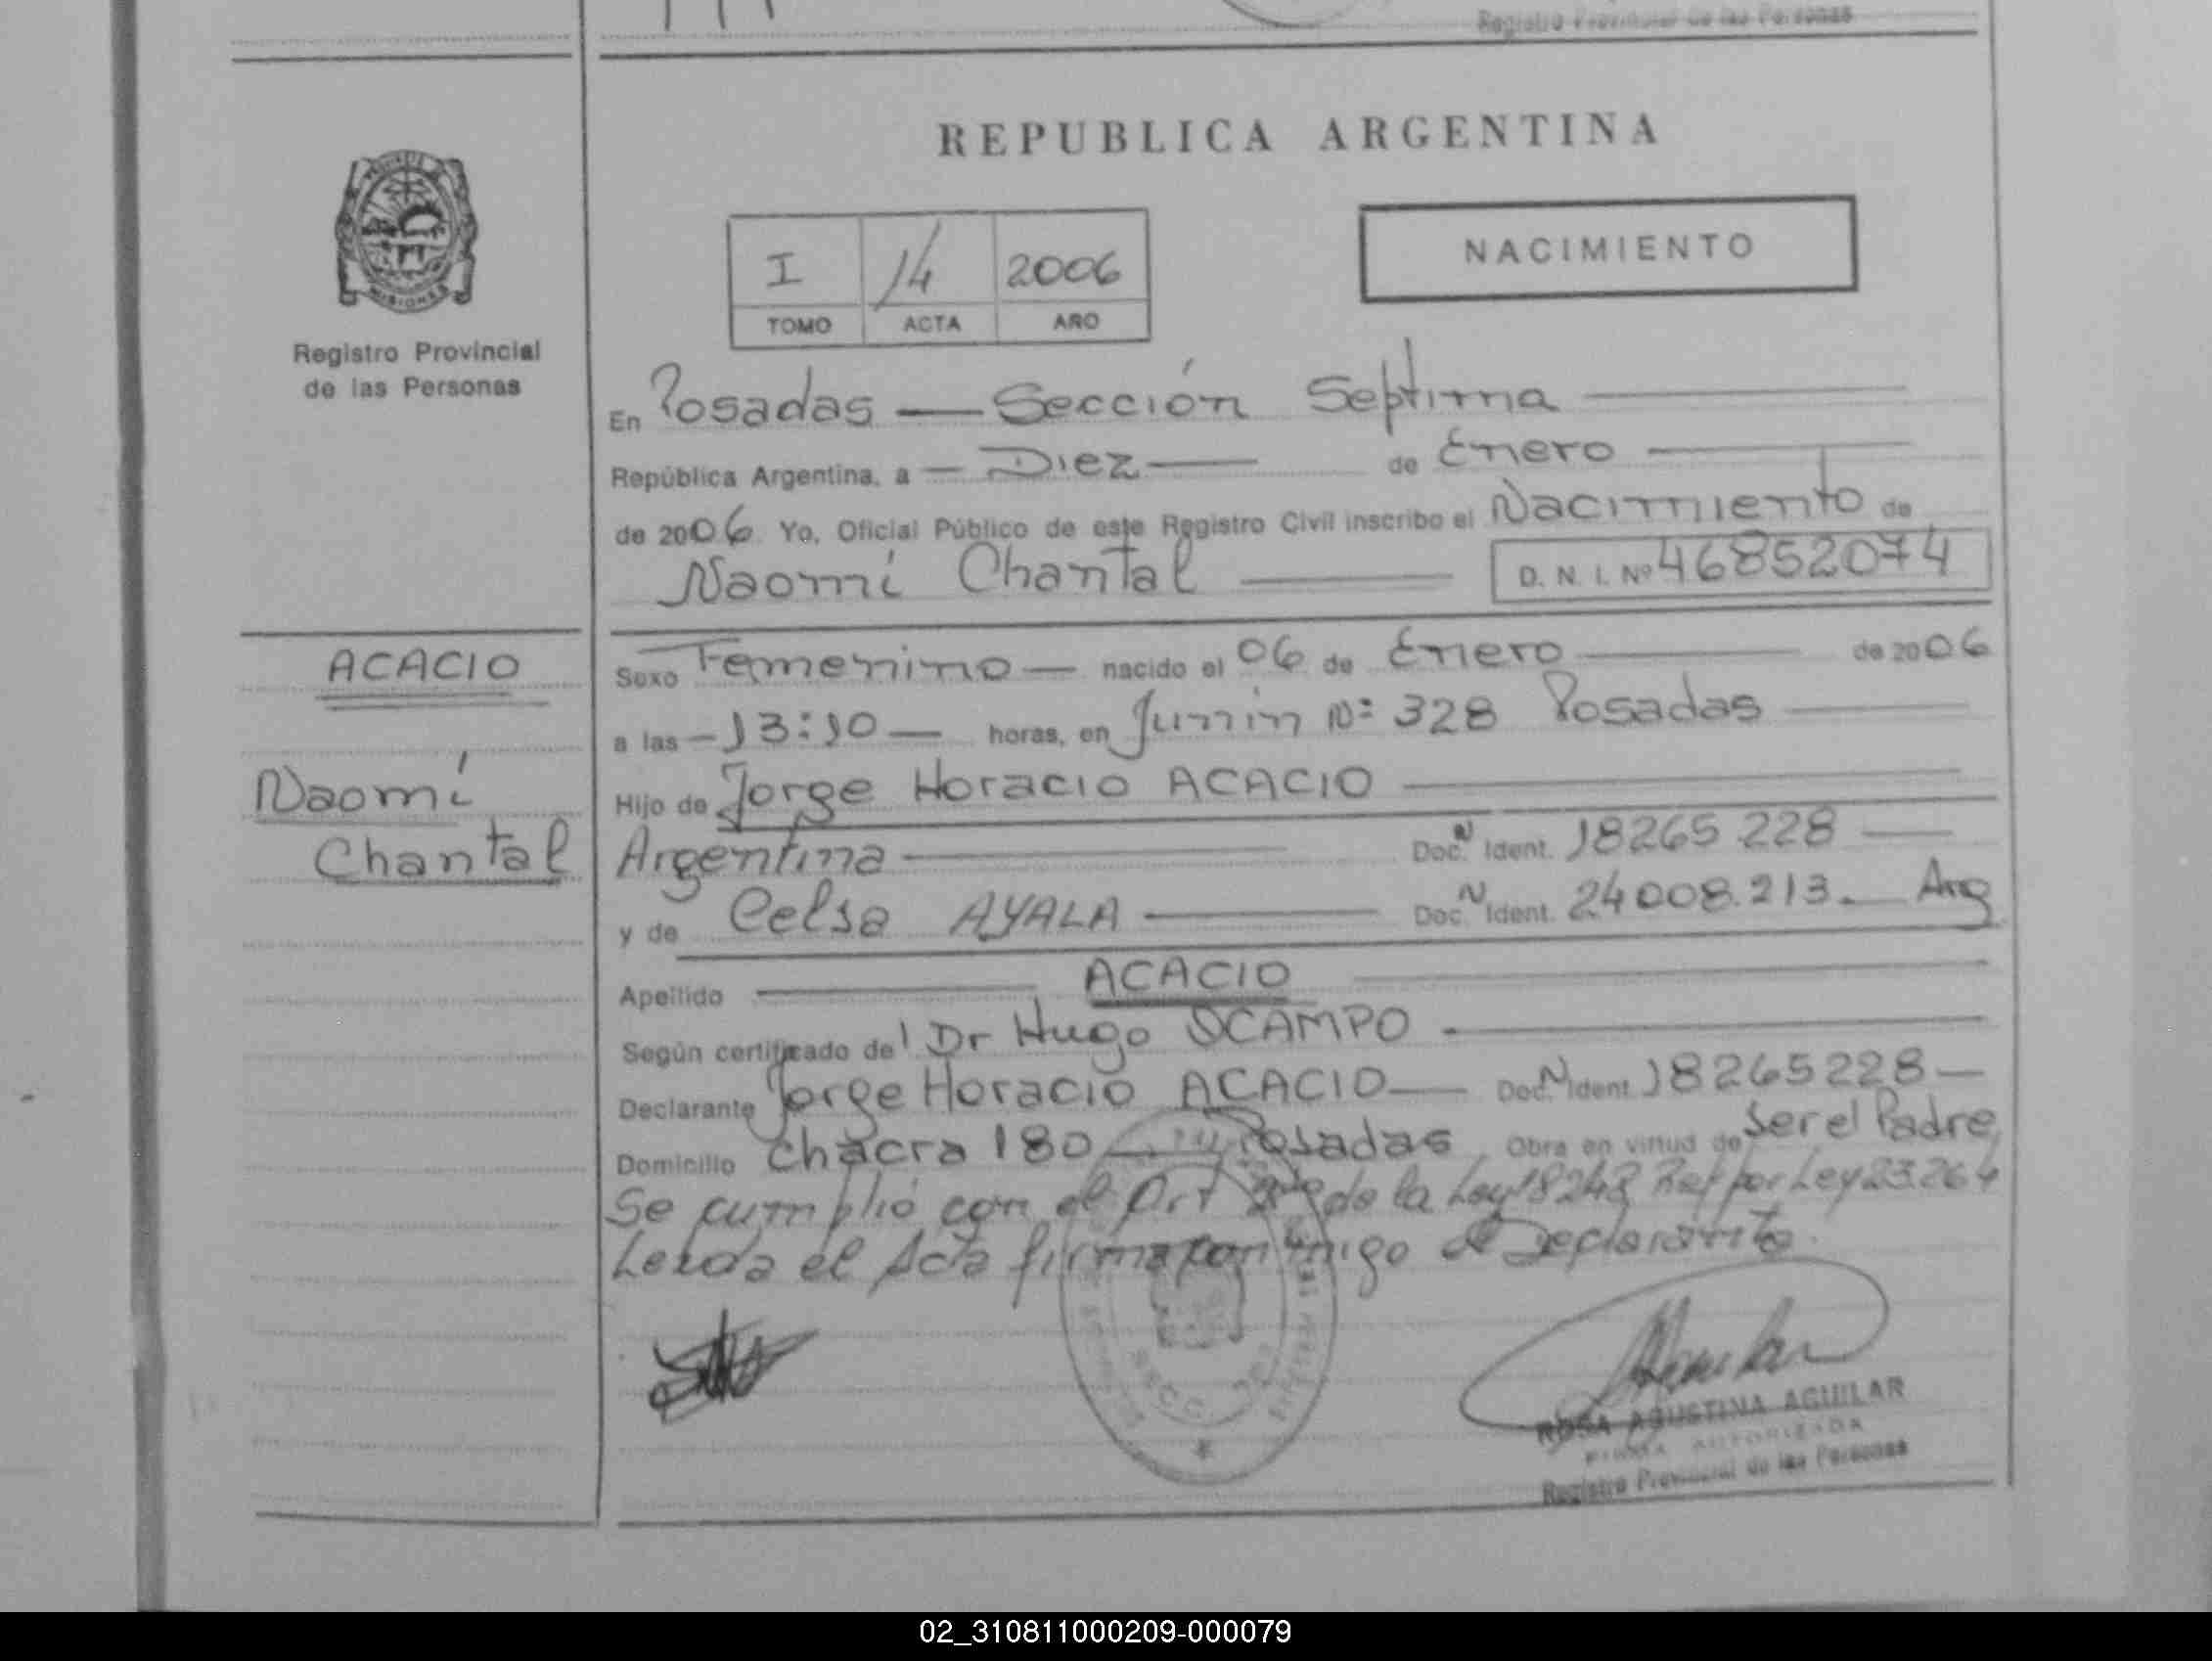 Registro Provincial de las Personas
REPUBLICA ARGENTINA
MISIONES
Registro Provincial
de las Personas
I 14 2006
TOMO ACTA AÑO
NACIMIENTO
En Posadas — Sección Septima
República Argentina, a — Diez — de Enero
de 2006 Yo, Oficial Público de este Registro Civil inscribo el Nacimiento de
Naomí Chantal — D. N. I. Nº 46852074
ACACIO
Naomí
Chantal
Sexo Femenino — nacido el 06 de Enero — de 2006
a las — 13:10 — horas, en Junin Nº 328 Posadas
Hijo de Jorge Horacio ACACIO
Argentina — Doc. N Ident. 18265228
y de Celsa AYALA — Doc. N Ident. 24008.213. Arg
Apellido — ACACIO
Según certificado del Dr Hugo OCAMPO
Declarante Jorge Horacio ACACIO — Doc. N Ident. 18265228
Domicilio Chacra 180 — Posadas Obra en virtud de Ser el Padre
Se cumplió con el Art de la Ley 18248 Ref por Ley 23.264
Leida el Acta firma conmigo el Declarante.
ROSA AGUSTINA AGUILAR
FIRMA AUTORIZADA
Registro Provincial de las Personas
02_310811000209-000079